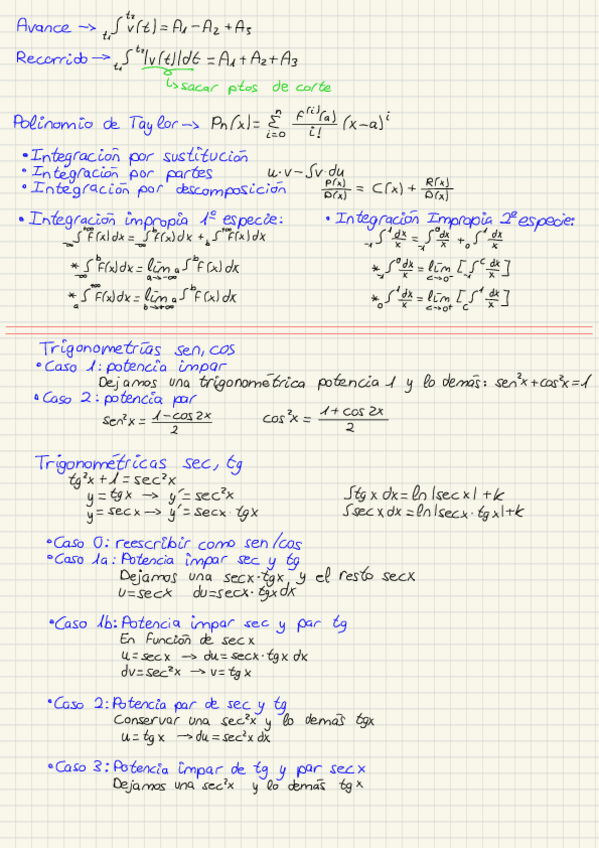 Avance → t₁∫t₂ v(t) = A₁ - A₂ + A₃
Recorrido → t₁∫t₂ |v(t)|dt = A₁ + A₂ + A₃
↳ sacar ptos de corte
Polinomio de Taylor → Pn(x) = Σ(i=0, n) F⁽ⁱ⁾(a)/i! (x-a)ⁱ
• Integración por sustitución
• Integración por partes u·v - ∫v·du
• Integración por descomposición P(x)/D(x) = C(x) + R(x)/D(x)
• Integración impropia 1ª especie:
-∞∫+∞ F(x)dx = -∞∫b F(x)dx + b∫+∞ F(x)dx
* -∞∫b F(x)dx = lim a→-∞ a∫b F(x)dx
* a∫+∞ F(x)dx = lim b→+∞ a∫b F(x)dx
• Integración Impropia 2ª especie:
-1∫1 dx/x = -1∫0 dx/x + 0∫1 dx/x
* -1∫0 dx/x = lim c→0⁻ [-1∫c dx/x]
* 0∫1 dx/x = lim c→0⁺ [c∫1 dx/x]
Trigonometrías sen, cos
• Caso 1: potencia impar
Dejamos una trigonométrica potencia 1 y lo demás: sen²x+cos²x=1
• Caso 2: potencia par
sen²x = 1-cos2x/2 cos²x = 1+cos2x/2
Trigonométricas sec, tg
tg²x + 1 = sec²x
y = tgx → y' = sec²x ∫tgx dx = ln|secx| + k
y = secx → y' = secx · tgx ∫secx dx = ln|secx·tgx| + k
• Caso 0: reescribir como sen/cos
• Caso 1a: Potencia impar sec y tg
Dejamos una secx·tgx, y el resto secx
u = secx du = secx·tgx dx
• Caso 1b: Potencia impar sec y par tg
En función de secx
u = secx → du = secx·tgx dx
dv = sec²x → v = tgx
• Caso 2: Potencia par de sec y tg
Conservar una sec²x y lo demás tgx
u = tgx → du = sec²x dx
• Caso 3: Potencia impar de tg y par secx
Dejamos una sec²x y lo demás tgx